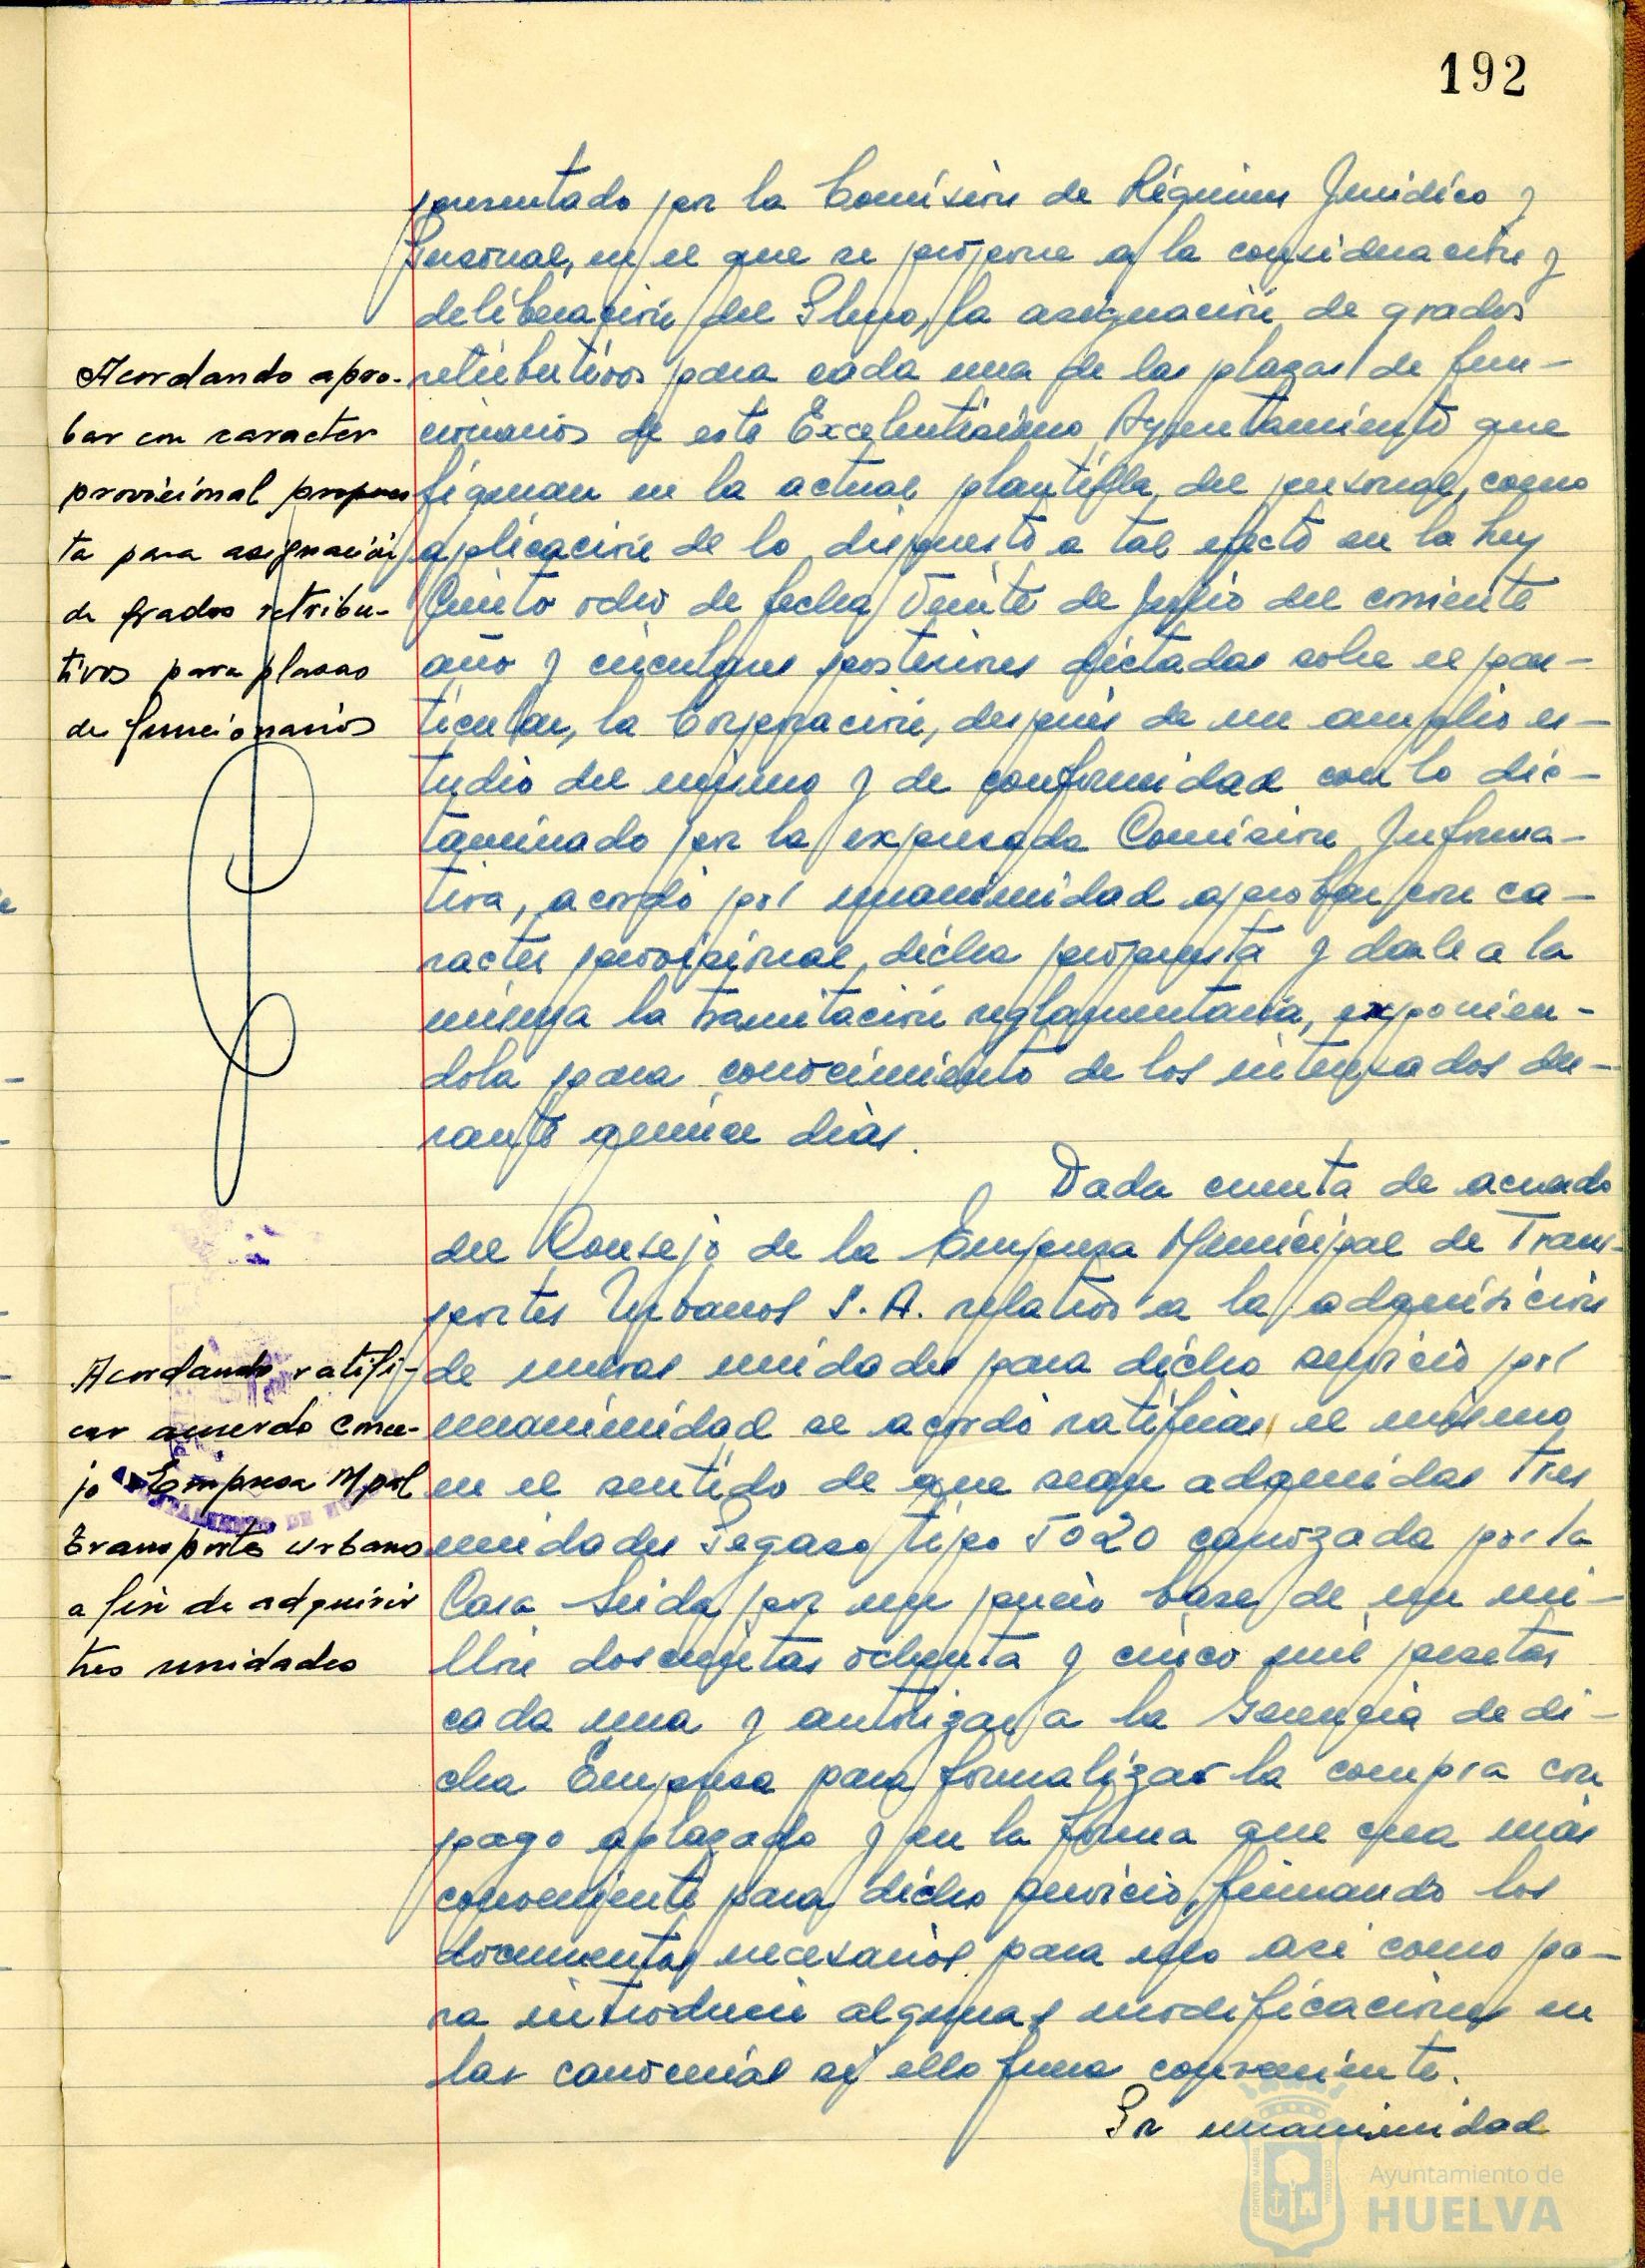 192
presentado por la Comisión de Régimen Jurídico y
Personal, en el que se propone a la consideración y
deliberación del Pleno, la asignación de grados
retributivos para cada una de las plazas de fun-
cionarios de este Excelentísimo Ayuntamiento que
figuran en la actual plantilla del personal, como
aplicación de lo dispuesto a tal efecto en la Ley
Ciento ocho de fecha Veinte de Julio del corriente
año y circulares posteriores dictadas sobre el par-
ticular, la Corporación, después de un amplio es-
tudio del mismo y de conformidad con lo dic-
taminado por la expresada Comisión Informa-
tiva, acordó por unanimidad aprobar con ca-
racter provisional, dicha propuesta y darle a la
misma la tramitación reglamentaria, exponien-
dola para conocimiento de los interesados du-
rante quince días.
Acordando apro-
bar con caracter
provisional propues
ta para asignación
de grados retribu-
tivos para plazas
de funcionarios
Dada cuenta de acuerdo
del Consejo de la Empresa Municipal de Trans-
portes Urbanos S. A. relativo a la adquisición
de nuevas unidades para dicho servicio por
unanimidad se acordó ratificar el mismo
en el sentido de que sean adquiridas tres
unidades Pegaso tipo 5020 carrozada por la
Casa Seida por un precio base de un mi-
llón doscientas ochenta y cinco mil pesetas
cada una y autorizar a la Gerencia de di-
cha Empresa para formalizar la compra con
pago aplazado y en la forma que crea más
conveniente para dicho servicio, firmando los
documentos necesarios para ello asi como pa-
ra introducir algunas modificaciones en
las carrocerias si ello fuera conveniente.
Acordando ratifi-
car acuerdo Conse-
jo Empresa Mpal
Transportes Urbanos
a fin de adquirir
tres unidades
Por unanimidad
Ayuntamiento de
HUELVA